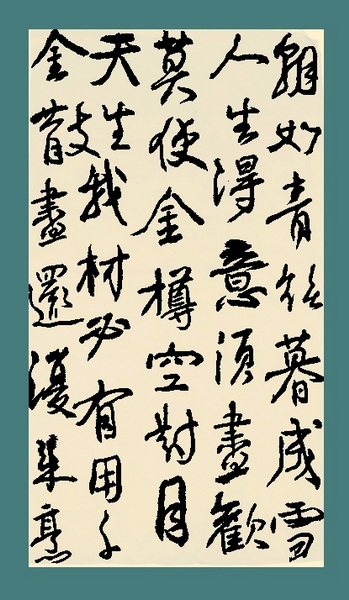 朝如青絲暮成雪
人生得意須盡歡
莫使金樽空對月
天生我材必有用千
金散盡還復来烹